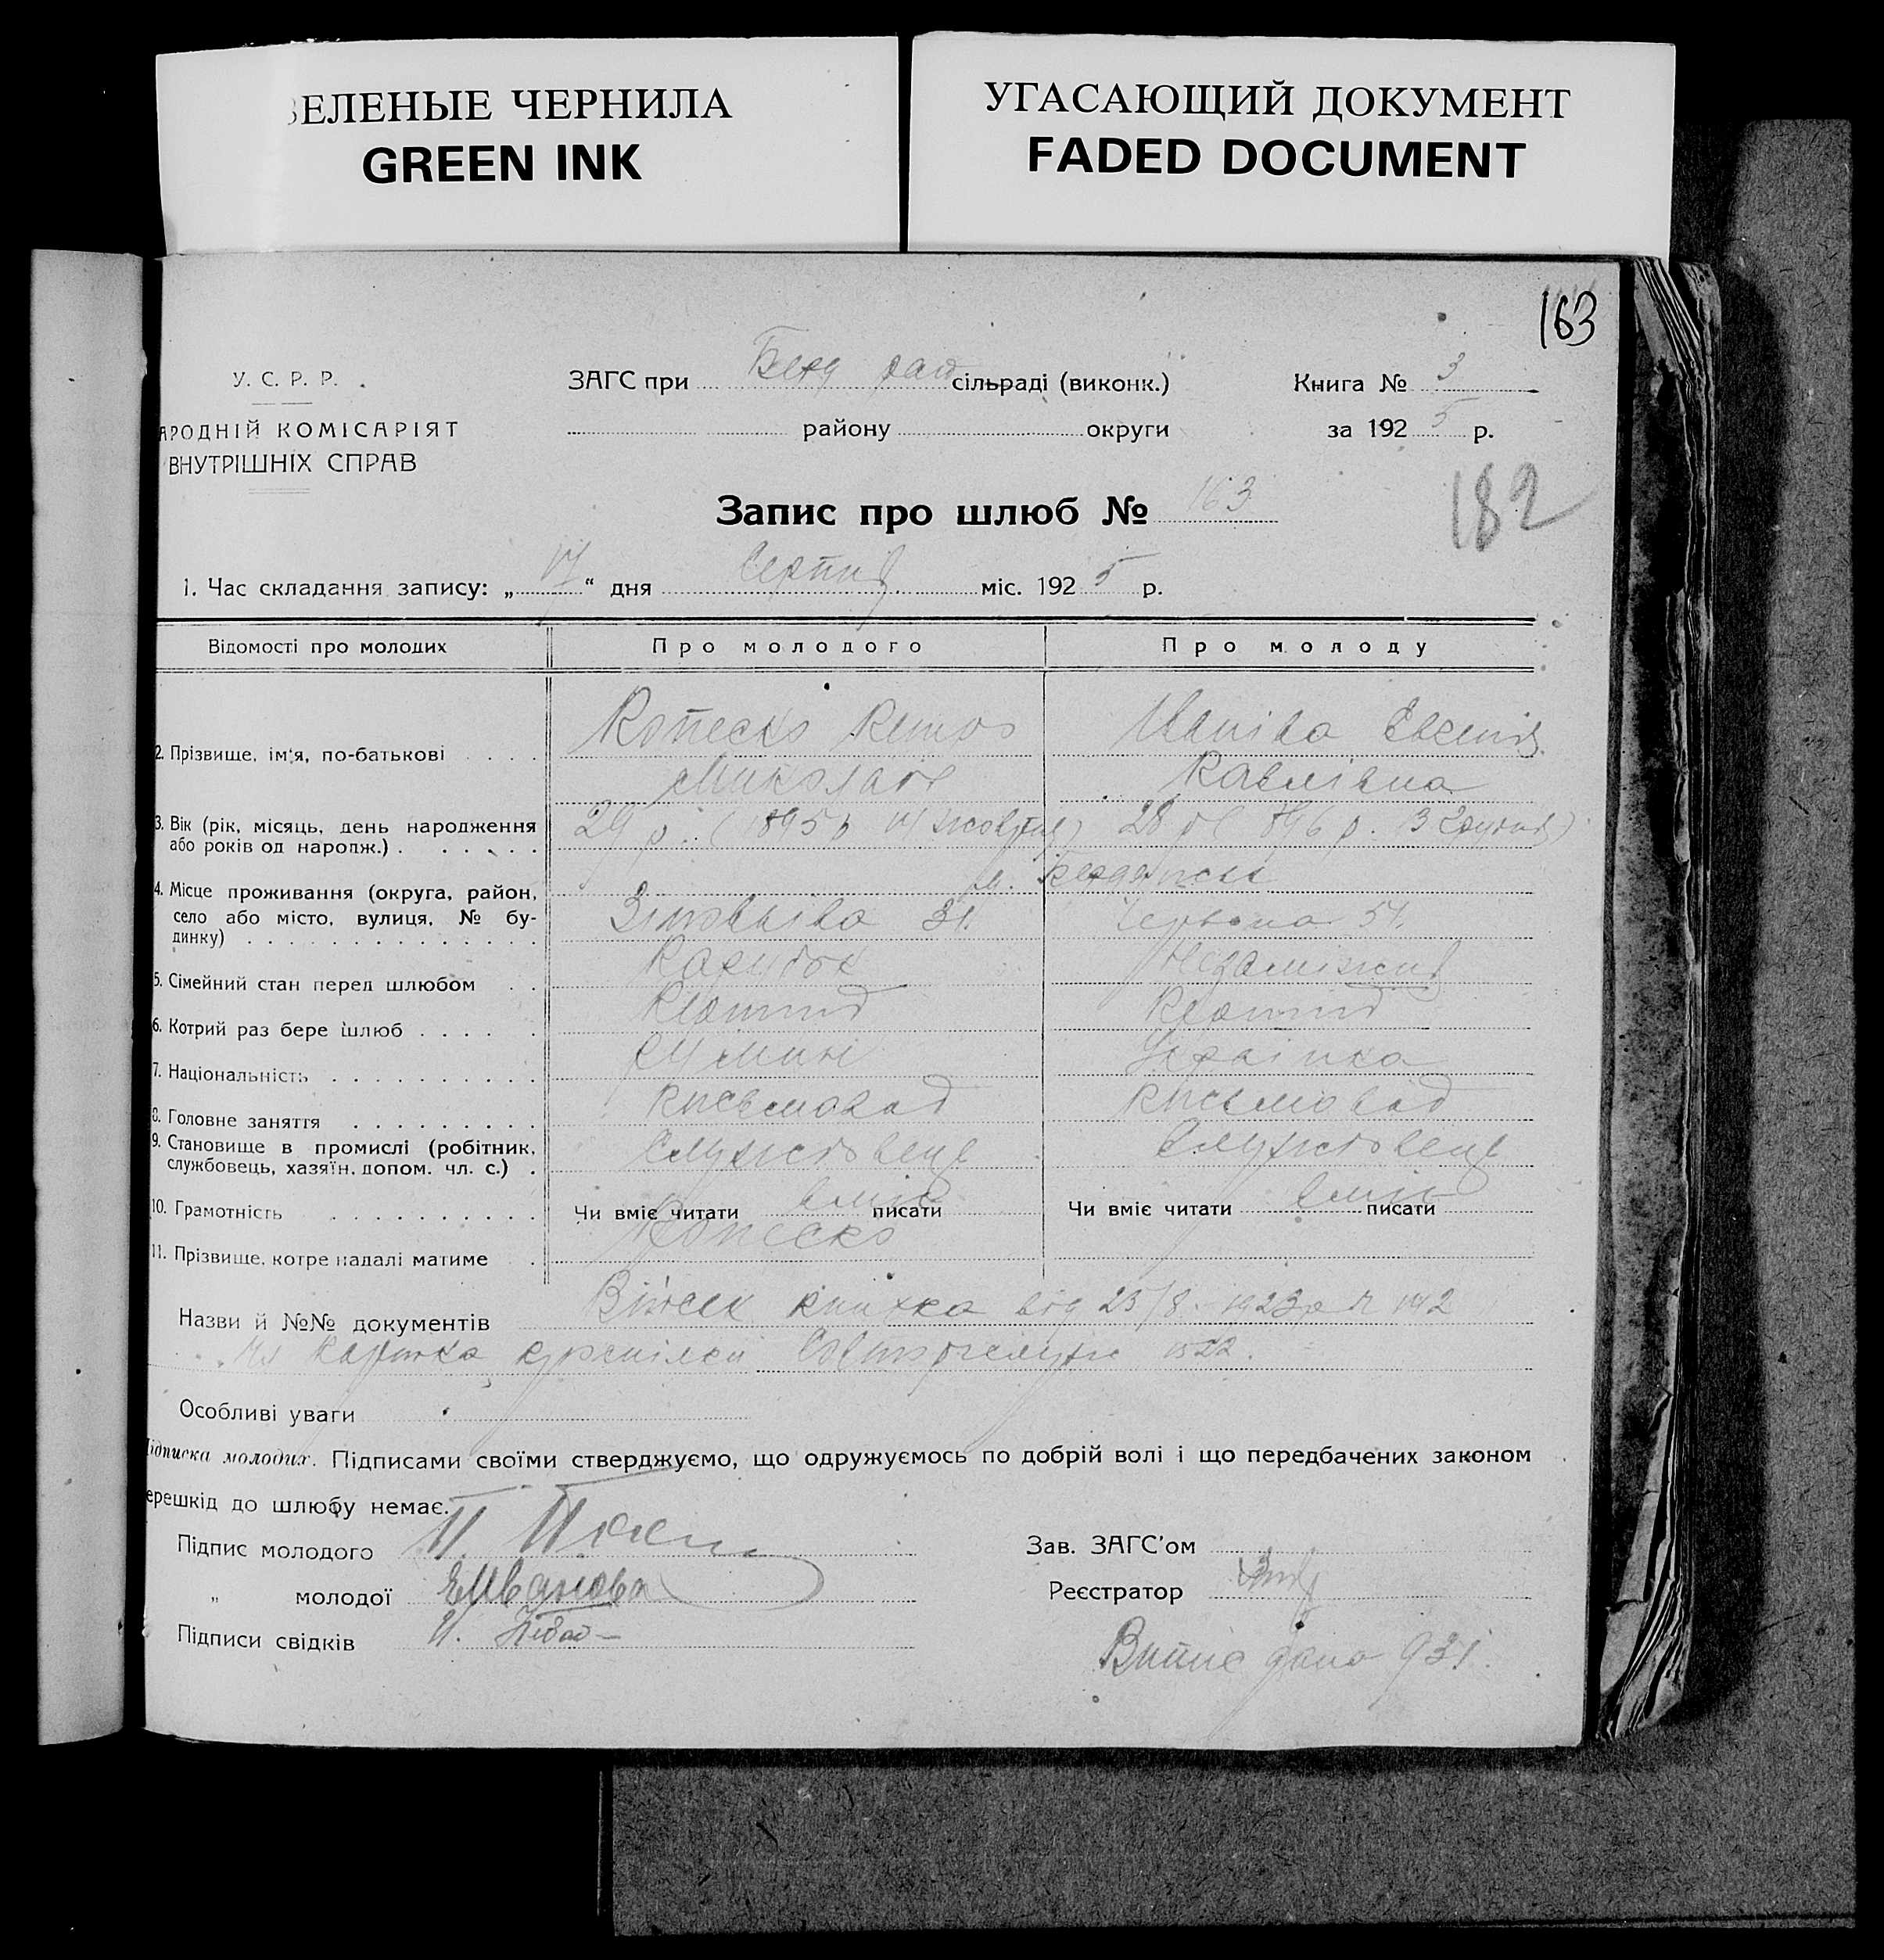 ЗЕЛЕНЫЕ ЧЕРНИЛА
GREEN INK
УГАСАЮЩИЙ ДОКУМЕНТ
FADED DOCUMENT
163
У. С. Р. Р.
АРОДНІЙ КОМІСАРІЯТ
ВНУТРІШНІХ СПРАВ
ЗАГС при Берд рай сільраді (виконк.)
району округи
Книга № 3
за 1925 р.
Запис про шлюб № 163
182
1. Час складання запису: „17“ дня Серпня міс. 1925 р.
Відомості про молодих Про молодого Про молоду
2. Прізвище, ім'я, по-батькові
Миколаєв Павлівна
3. Вік (рік, місяць, день народження або років од народж.) 29 р. (1895 р 14 жовтня) 28 р (896 р. 13 Грудня)
м. Бердянськ
4. Місце проживання (округа, район, село або місто, вулиця, № будинку) 31. Червона 54.
5. Сімейний стан перед шлюбом Парубок Незаміжня
6. Котрий раз бере шлюб Первий Первий
7. Національність Румин Українка
8. Головне заняття Письмовод Письмовод
9. Становище в промислі (робітник, службовець, хазяїн, допом. чл. с.) Службовець Службовець
10. Грамотність Чи вміє читати вміє писати Чи вміє читати вміє писати
11. Прізвище, котре надалі матиме
Назви й №№ документів Військ книжка від 23/8 - 1923 р № 142
Чл карт­ка 1522.
Особливі уваги
Підписка молодих. Підписами своїми стверджуємо, що одружуємось по добрій волі і що передбачених законом
ерешкід до шлюбу немає.
Підпис молодого
„ молодої Е Иванова
Підписи свідків
Зав. ЗАГС'ом
Реєстратор
Витяг дано 931.